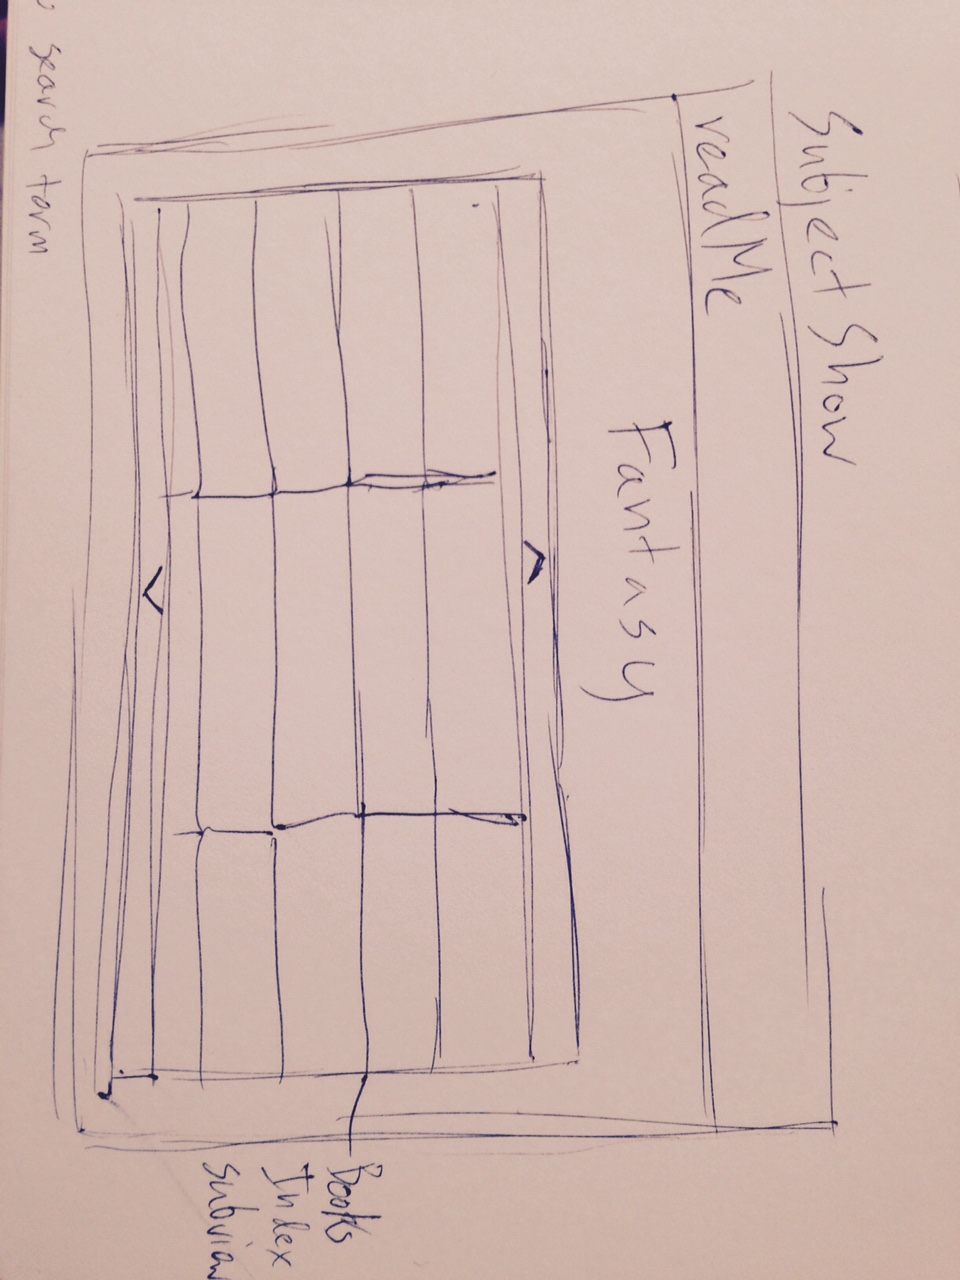 Subject Show
readMe
Fantasy
Books
Index
subview
search term